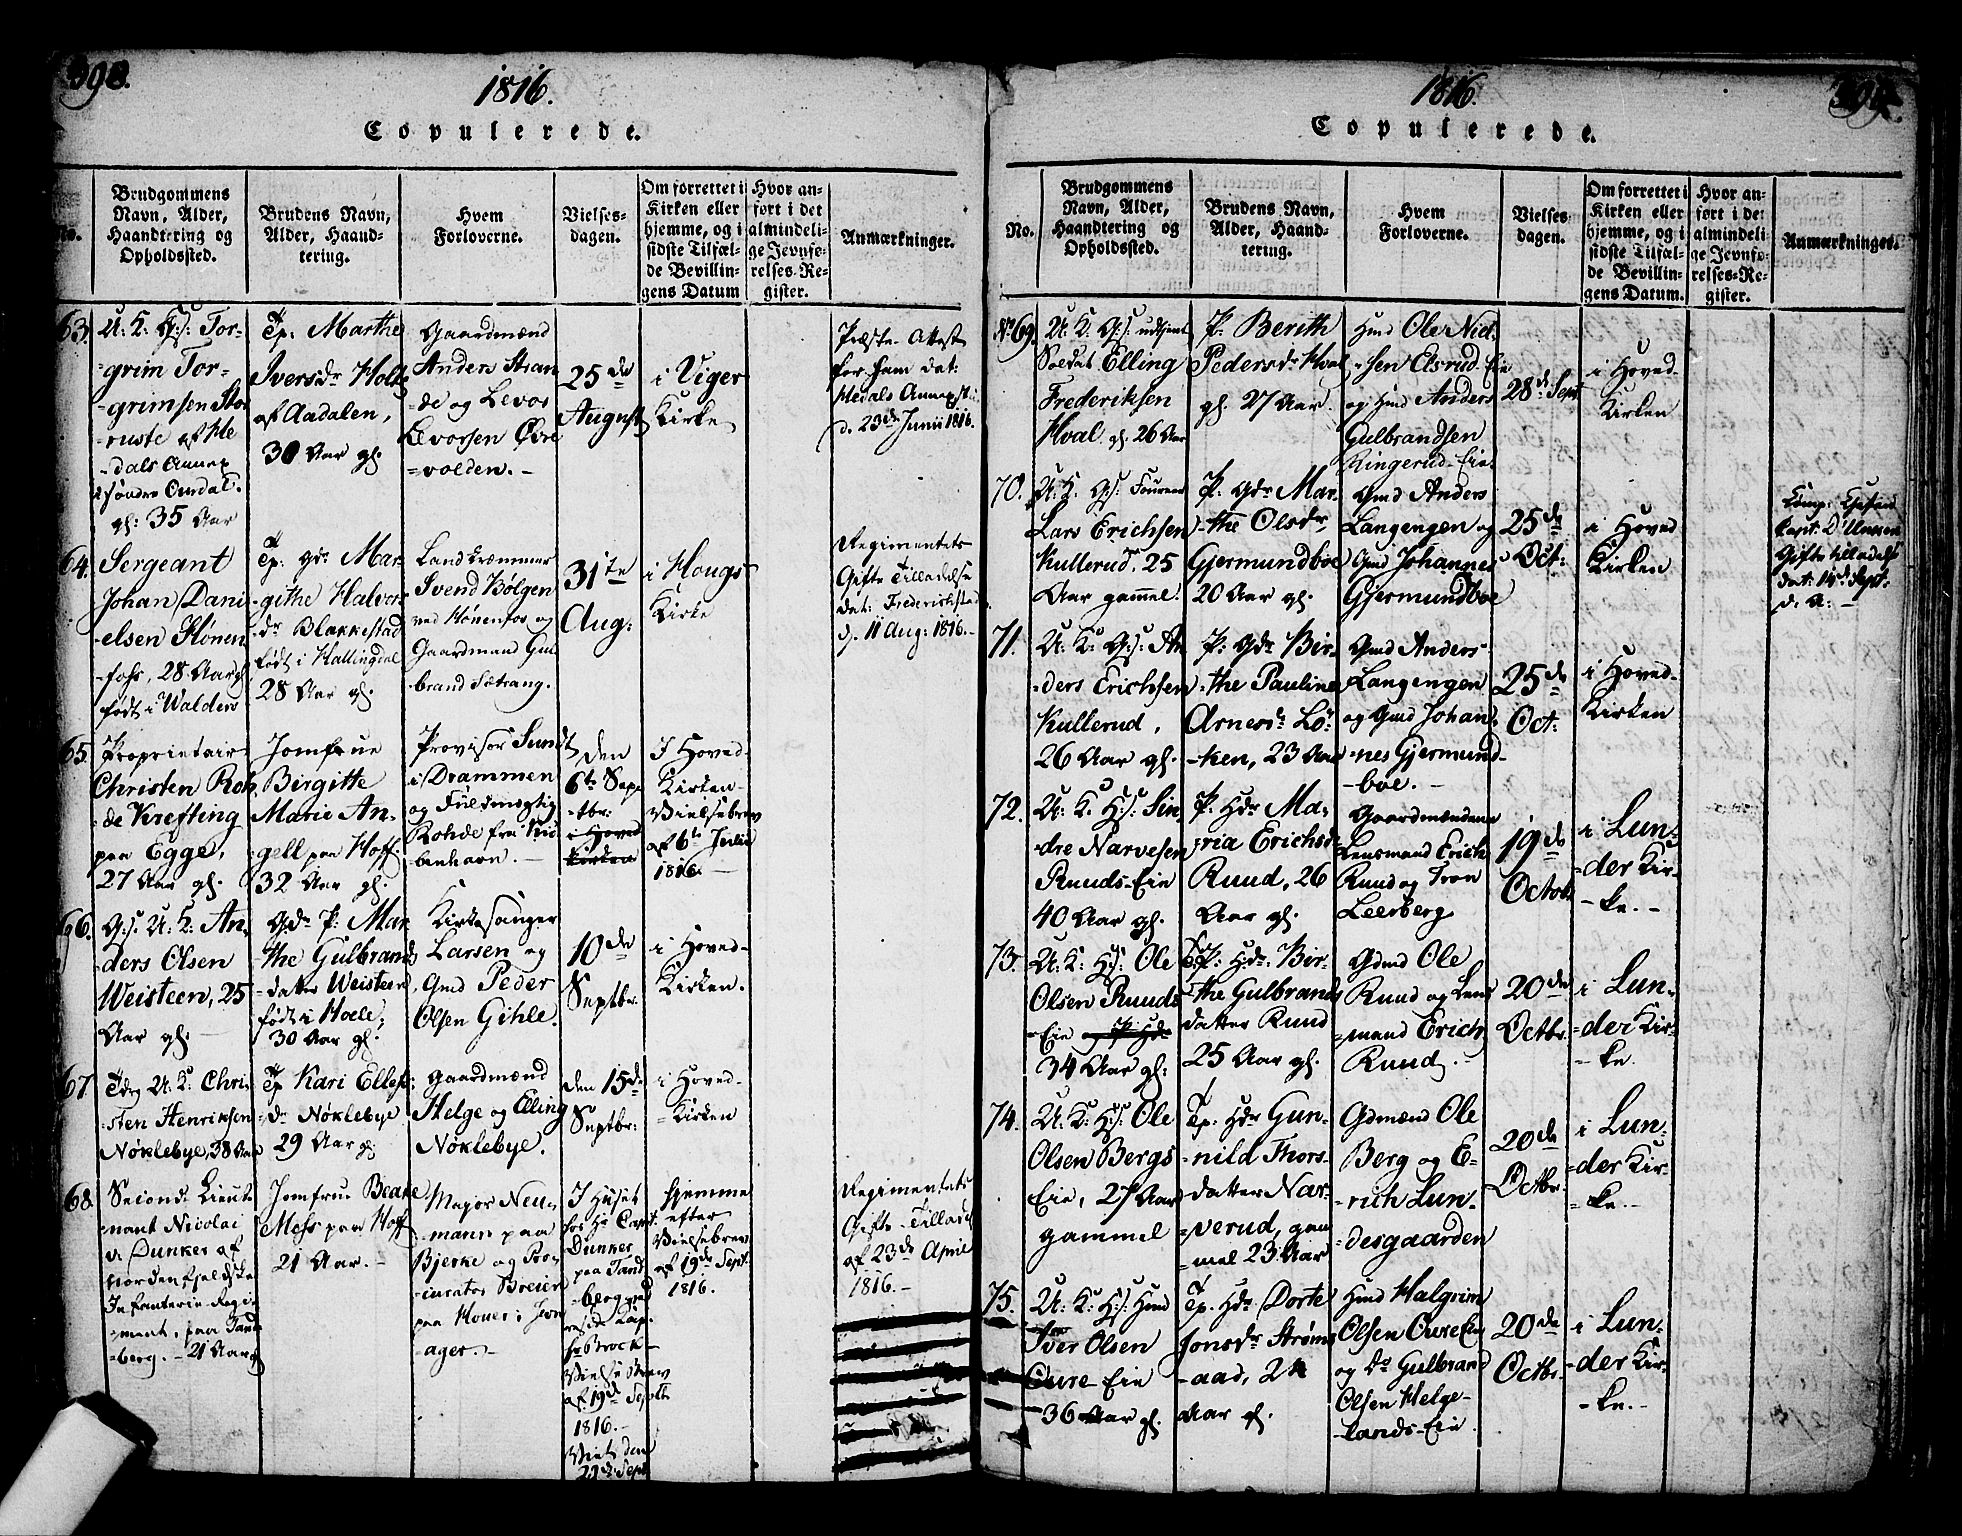 390.
1816.
Copulerede.
No.
Brudgommens
Navn, Alder,
Haandtering og
Opholdssted.
Brudens Navn,
Alder, Haand-
tering.
Hvem
Forloverne.
Vielses-
dagen.
Om forrettet i
Kirken eller
hjemme, og i
sidste Tilfæl-
de Bevillin-
gens Datum
Hvor an-
ført i det
almindeli-
ge Jevnfø-
relses-Re-
gister.
Anmærkninger.
63.
U: K: G:s: Tor-
grim Tor-
grimsen Stor
ruste af He
dals Annex
i søndre Ourdal.
gl: 35 Aar
P: Marthe
Iversdr Holte
af Aadalen,
30 Aar gl.
Gaardmænd
Anders Stran
de og Levor
Levorsen Øvre
volden.
25de
August
i Viger
Kirke
Præste Attest
for ham dat:
Hedals Annex
d. 23de Junii 1816.
64.
Sergeant
Johan Dani
elsen Hønen
fohs, 28 Aar gl
født i Walders
P: Gdr Mar
githe Halvors
dr Blakkestad
født i Hallingdal
28 Aar gl.
Landkræmmer
Svend Bølgen
ved Hønenfos og
Gaardmand Gul
brand Sætrang.
31te
Aug:
i Hougs
Kirke
Regimentets
Gifte Tilladelse
dat: Frederichstad
d. 11 Aug: 1816.
65.
Proprietair
Christen Roh
de Krefting
paa Egge,
27 Aar gl.
Jomfrue
Birgitte
Marie An-
gell paa Hoff
32 Aar gl.
Provisor Sundt
i Drammen
og Fuldmægtig
Rohde fra Kiø
benhavn.
den
6te Sep
tbr:
i Hoved
Kirken
I Hoved-
Kirken
Vielsebrev
af 6te Julii
1816.
66.
G:s: U: K: An-
ders Olsen
Weisteen, 25
Aar gl.
Gdr P: Mar
the Gulbrands
datter Weisteen
født i Hole,
30 Aar gl.
Kirkesanger
Larsen og
Gmd Peder
Olsen Gihle.
10de
Septbr.
i Hoved-
Kirken.
67.
U: K: Chri-
sten Henriksen
Nøklebye, 38 Aar
P Kari Ellefs
dr Nøklebye
29 Aar gl.
Gaardmænd
Helge og Elling
Nøklebye.
den 15de
Septbr:
i Hoved-
Kirken
68.
Second Lieut
nant Nicolai
v: Dunker af
nordenfjeldske
Infanterie Regi-
ment, paa Tand
berg. 21 Aar gl
Jomfrue Beate
Mehs paa Hoff
21 Aar.
Major Neu-
mann paa
Bjerke og Pro-
curator Breier
paa Houer i Jevn
ager.
I Huset
hos Hr Capt:
Dunker
paa Tand
berg ved
resid: Cap:
Hr Brock
Vielse Brev
af 19de Septbr
1816.
Viet den
29de Sept
hjemme
efter
Vielsebrev
af 19de Sept
1816.
Regimentets
Gifte-Tilladelse
af 23de April
1816.
1816.
391.
Copulerede.
No.
Brudgommens
Navn, Alder,
Haandtering og
Opholdssted.
Brudens Navn,
Alder, Haand-
tering.
Hvem
Forloverne.
Vielses-
dagen.
Om forrettet i
Kirken eller
hjemme, og i
sidste Tilfæl-
de Bevillin-
gens Datum.
Hvor an-
ført i det
almindeli-
ge Jevnfø-
relses-Re-
gister.
Anmærkninger.
No 69.
U: K: G:s: udtjent
Soldat Elling
Frederiksen
Hval gl. 26 Aar
P: Berith
Pedersdr Hval
gl. 27 Aar.
Hmd Ole Niel
sen Elsrud-Eie
og Hmd Anders
Gulbrandsen
Ringerud-Eie.
28de Sept
i Hoved-
Kirken
70.
U: K: G:s: Foureer
Lars Erichsen
Kullerud, 25
Aar gammel.
P: Gdr Mar
the Olsdr
Gjermundboe
20 Aar gl.
Gmd Anders
Langengen og
Gmd Johannes
Gjermundboe
25de
Oct:
i Hoved
Kirken
Gifte tilladelse
71.
U: K: G:s: An
ders Erichsen
Kullerud,
26 Aar gl.
P: Gdr Bir-
the Pauline
Arnesdr Lø-
ken, 23 Aar
Gmd Anders
Langengen
og Gmd Johan
nes Gjermund-
boe.
25de
Oct:
i Hoved-
Kirken
72.
U: K: H:s: Sin
dre Narvesen
Ruuds-Eie
40 Aar gl.
P: Hdr Ma-
ria Erichsdr
Ruud, 26
Aar gl.
Gaardmændene
Lensmand Erich
Ruud og Tron
Leerberg
19de
Octob:
i Lun-
der Kir-
ke.
73.
U: K: H:s: Ole
Olsen Ruuds
Eie
34 Aar gl:
P: Hdr: Bir-
the Gulbrands
datter Ruud
25 Aar gl.
Gdmd Ole
Ruud og Lens
mand Erich
Ruud.
20de
Octbr.
i Lun-
der Kir-
ke.
74.
U: K: H:s: Ole
Olsen Bergs
Eie, 27 Aar
gammel
P: Hdr Gun-
nild Thors-
datter Nar-
verud, gam
mel 23 Aar
Gdmænd Ole
Berg og E-
rich Lun-
desgaarden
20de
Octbr.
i Lun-
der Kir-
ke.
75.
U: K: H:s: Hmd
Iver Olsen
Oure-Eie
36 Aar gl.
P. Hdr Dorte
Jonsdr Strøms
aad, 24
Aar gl.
Hmd Halgrim
Olsen Oure Eie
og Do Gulbrand
Olsen Helge-
lands-Eie
20de
Octbr.
i Lun-
der Kir-
ke.